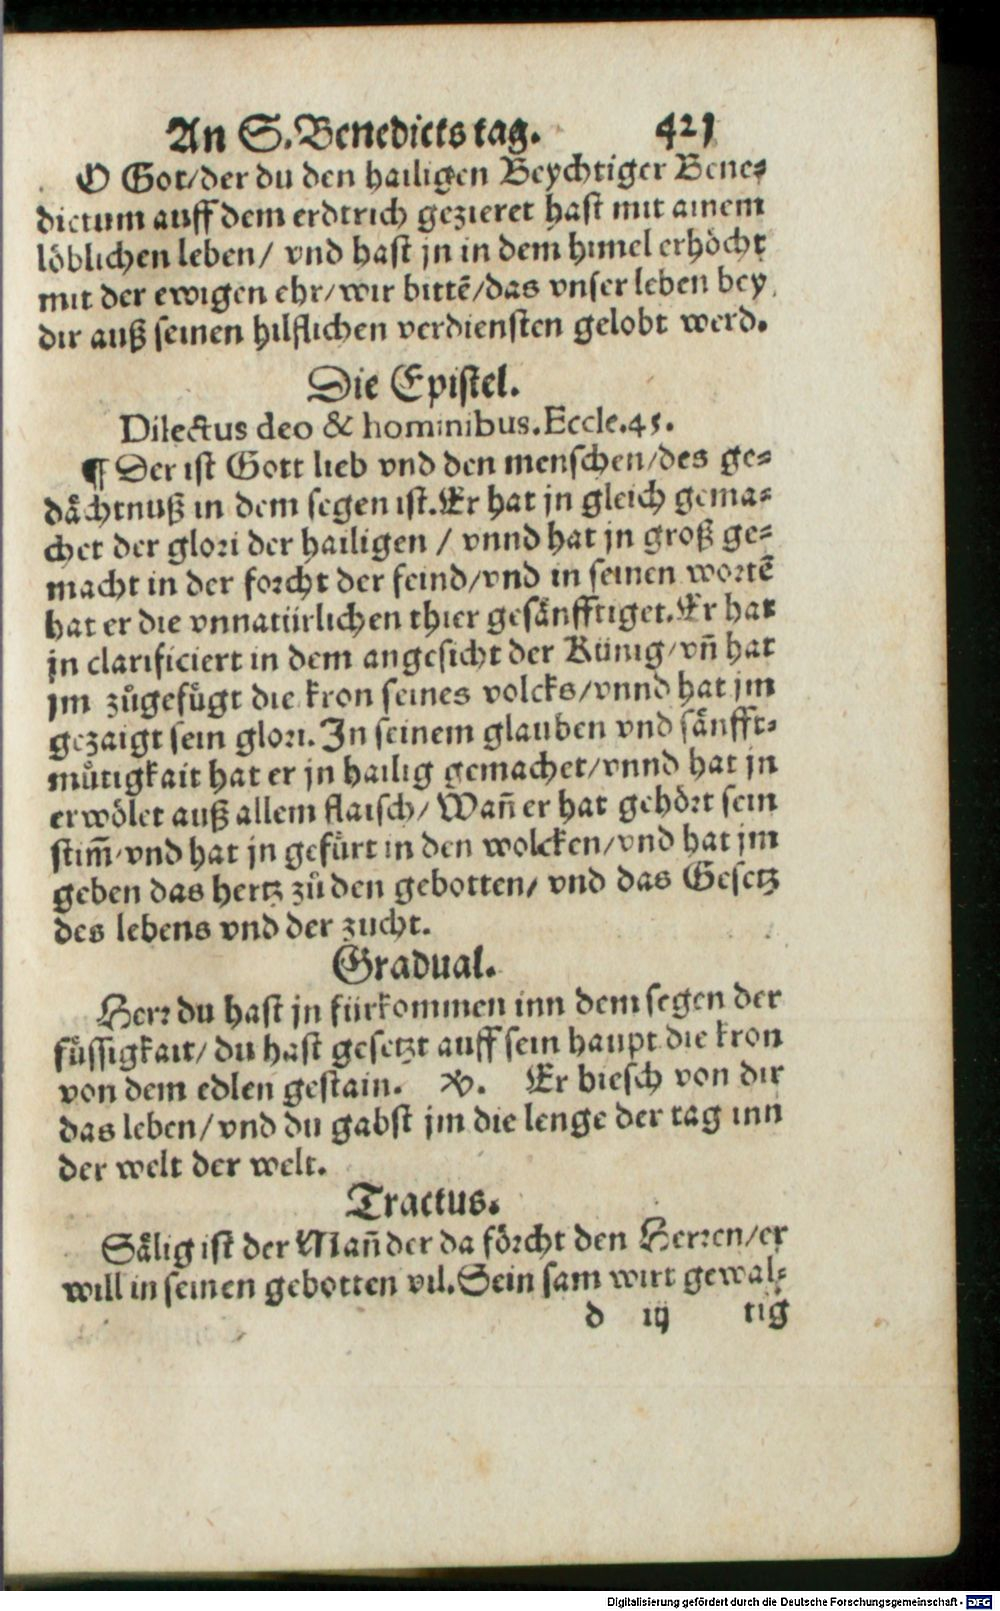 An S. Benedicts tag. 421
O Got/der du den hailigen Beychtiger Bene⸗
dictum auff dem erdtrich gezieret hast mit ainem
löblichen leben/ vnd hast jn in dem himel erhöcht
mit der ewigen ehr/wir bittē/das vnser leben bey
dir auß seinen hilflichen verdiensten gelobt werd.
Die Epistel.
Dilectus deo & hominibus. Eccle. 45.
¶ Der ist Gott lieb vnd den menschen/des ge⸗
dächtnuß in dem segen ist. Er hat jn gleich gema⸗
chet der glori der hailigen / vnnd hat jn groß ge⸗
macht in der forcht der feind/vnd in seinen wortē
hat er die vnnatürlichen thier gesänfftiget. Er hat
jn clarificiert in dem angesicht der Künig/vñ hat
jm zůgefůgt die kron seines volcks/vnnd hat jm
gezaigt sein glori. In seinem glauben vnd sänfft⸗
můtigkait hat er jn hailig gemachet/vnnd hat jn
erwölet auß allem flaisch/ Wañ er hat gehört sein
stim̃/vnd hat jn gefürt in den wolcken/vnd hat jm
geben das hertz zů den gebotten/ vnd das Gesetz
des lebens vnd der zucht.
Gradual.
Herr du hast jn fürkommen inn dem segen der
süssigkait/ du hast gesetzt auff sein haupt die kron
von dem edlen gestain. ℣. Er hiesch von dir
das leben/vnd du gabst jm die lenge der tag inn
der welt der welt.
Tractus.
Sälig ist der Mañ der da förcht den Herren/er
will in seinen gebotten vil. Sein sam wirt gewal⸗
d iij tig
Digitalisierung gefördert durch die Deutsche Forschungsgemeinschaft - DFG